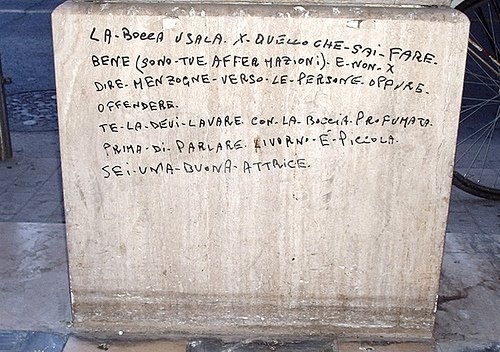 LA-BOCCA USALA. X-QUELLO CHE-SAI-FARE.
BENE (SONO-TUE AFFERMAZIONI). E-NON-X
DIRE-MENZOGNE-VERSO-LE-PERSONE-OPPURE-
OFFENDERE.
TE-LA-DEVI-LAVARE-CON-LA-BOCCIA-PROFUMATA.
PRIMA-DI-PARLARE. LIVORNO-È-PICCOLA.
SEI-UNA-BUONA-ATTRICE.